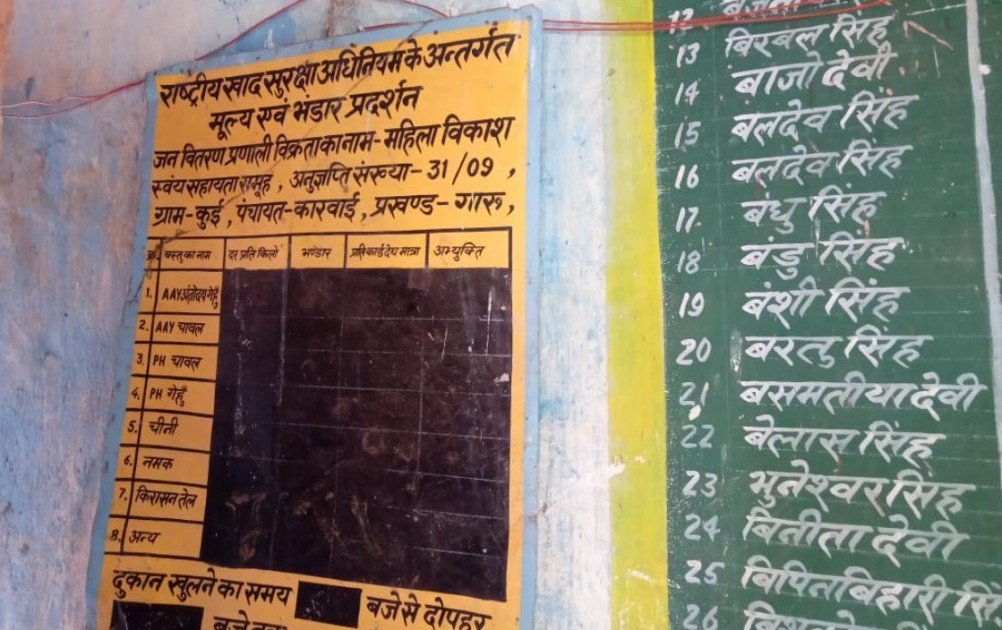 राष्ट्रीय खाद सुरक्षा अधिनियम के अन्तर्गत
मूल्य एवं भंडार प्रदर्शन
जन वितरण प्रणाली विक्रेता का नाम - महिला विकाश
स्वंय सहायता समूह , अनुज्ञप्ति संख्या - 31/09 ,
ग्राम - कुई , पंचायत - कारवाई , प्रखण्ड - गारू ,
वस्तु का नाम दर प्रति किलो भण्डार प्रति कार्ड देय मात्रा अभ्युक्ति
1. AAY अंत्योदय गेहूँ
2. AAY चावल
3. PH चावल
4. PH गेहूँ
5. चीनी
6. नमक
7. किरासन तेल
8. अन्य
दुकान खुलने का समय बजे से दोपहर
बजे तक
12
13 बिरबल सिंह
14 बाजो देवी
15 बलदेव सिंह
16 बलदेव सिंह
17. बंधु सिंह
18 बंडु सिंह
19 बंशी सिंह
20 बरतु सिंह
21 बसमतीया देवी
22 बेलास सिंह
23 भुनेश्वर सिंह
24 बिनीता देवी
25 बिपिन बिहारी
26